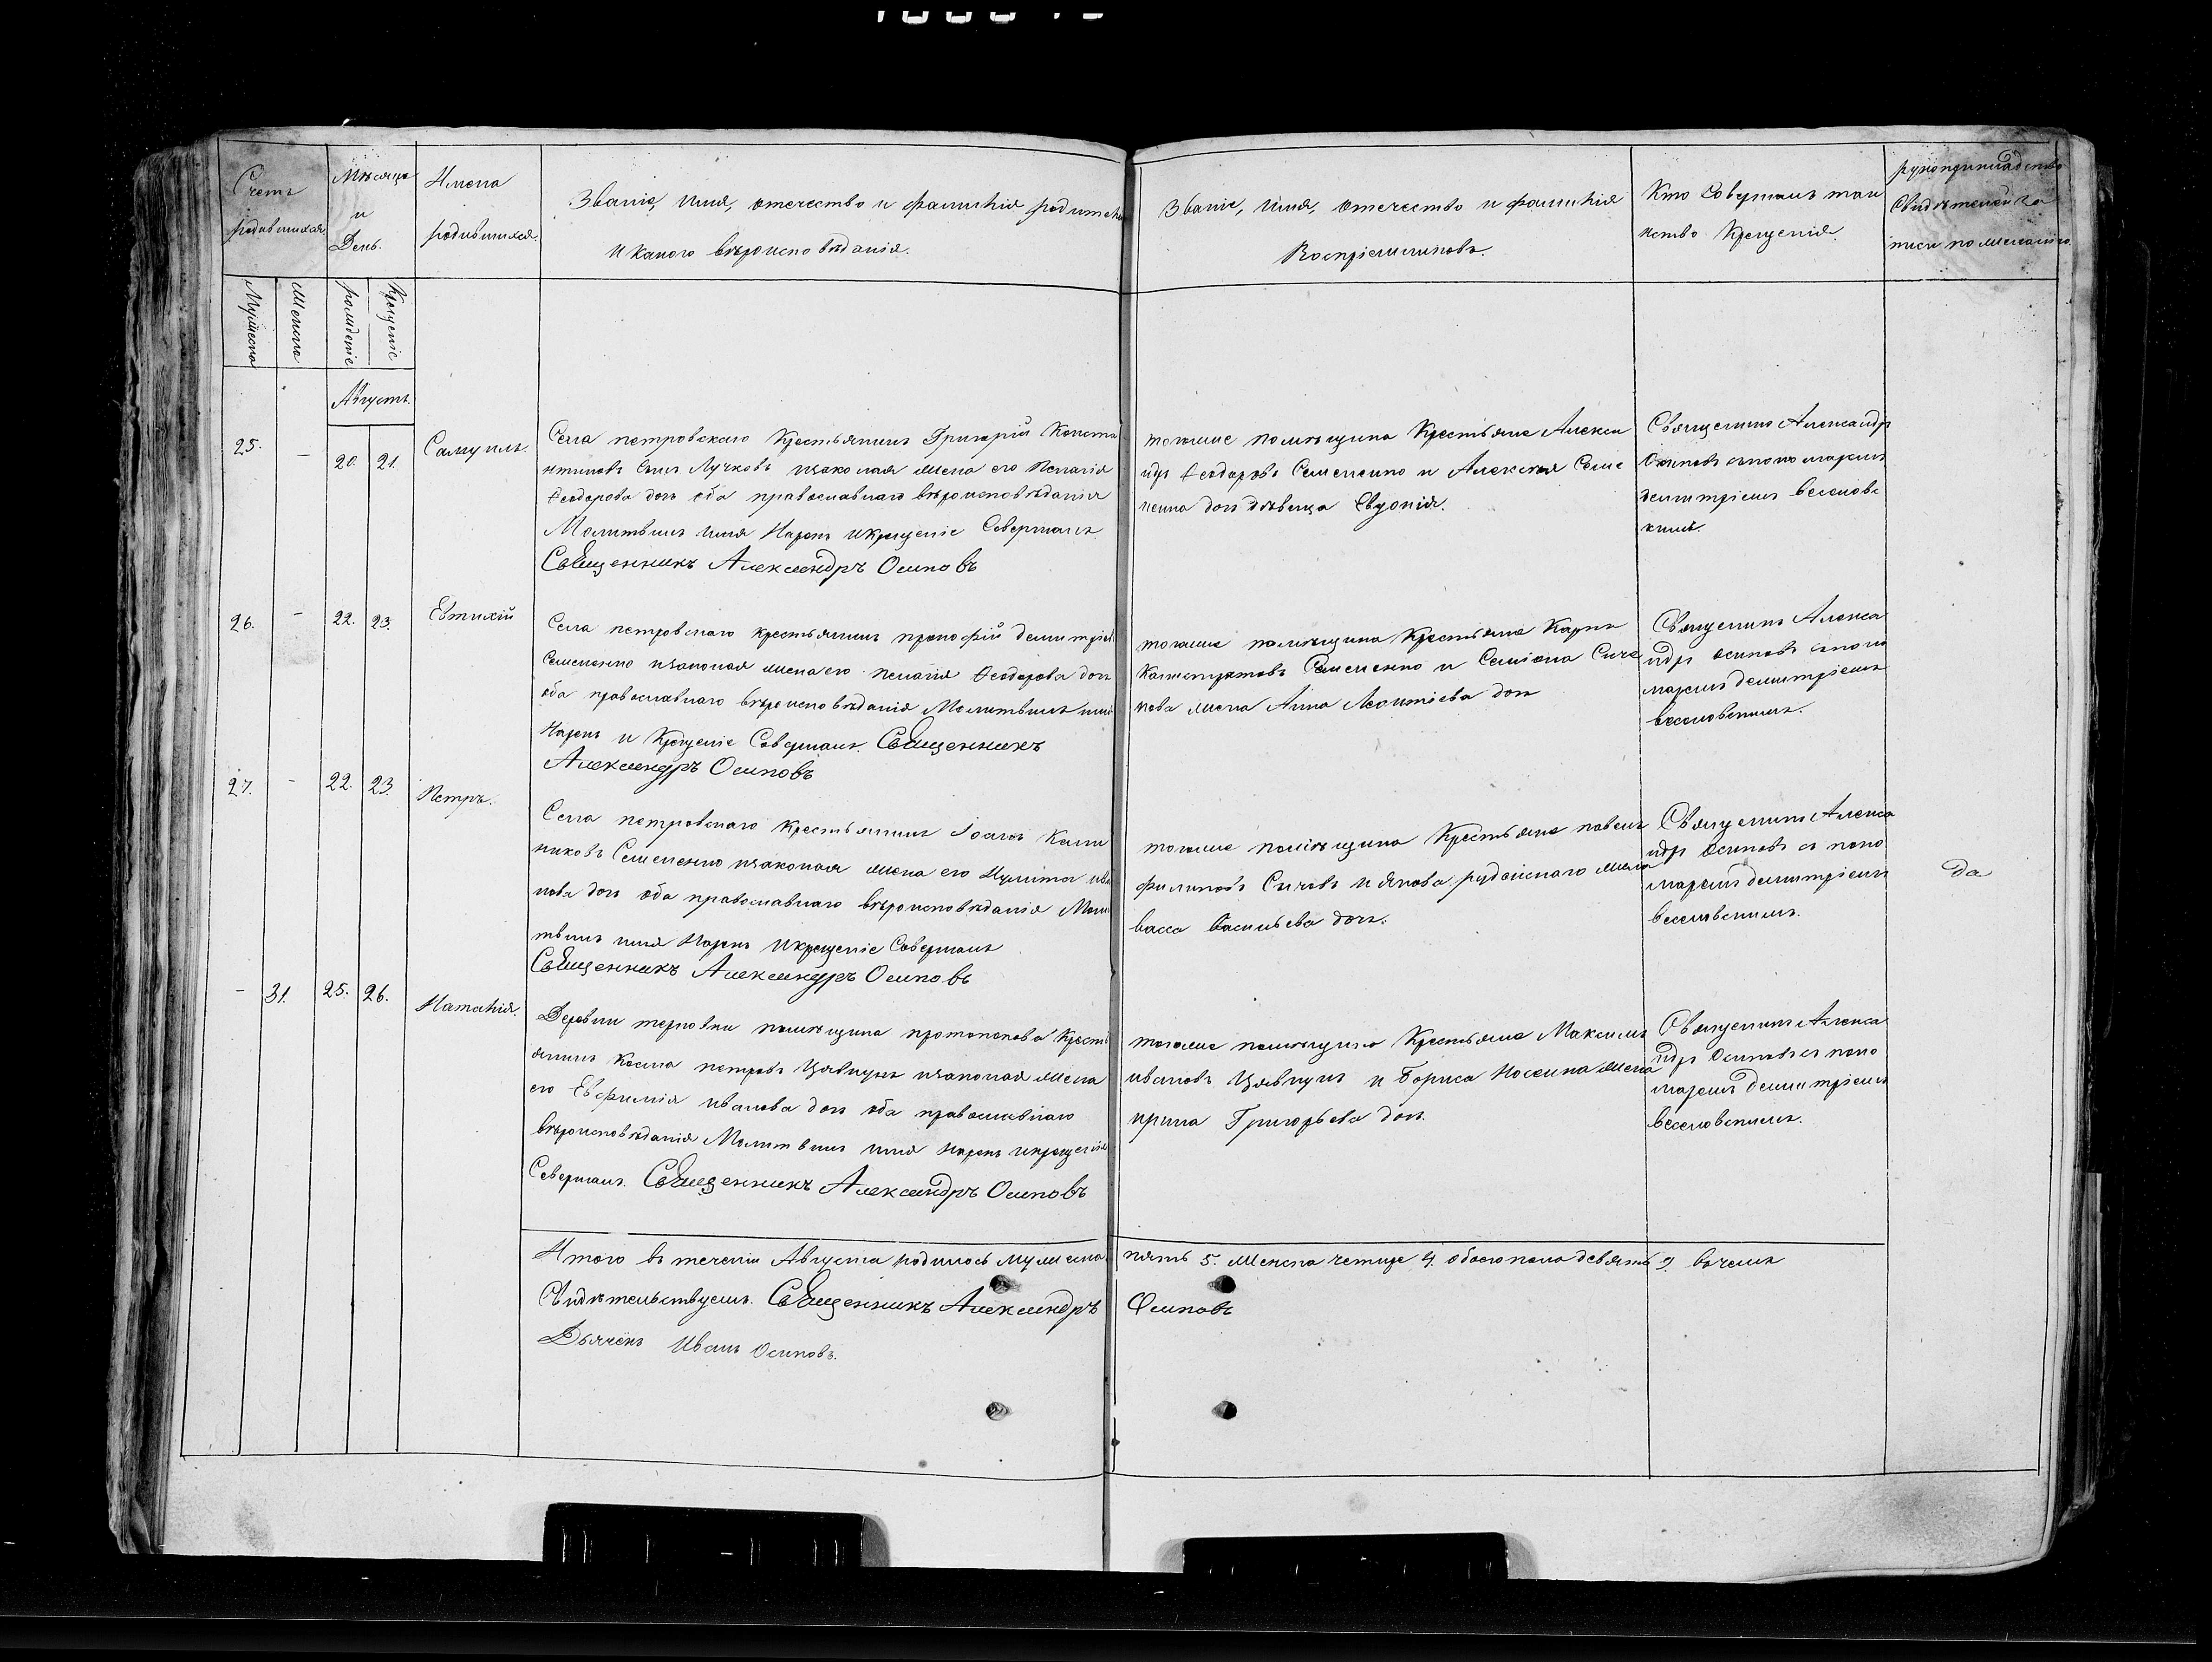 Счетъ родившихся.
Мѣсяцъ и День.
Имена родившихся.
Званіе, имя, отечество и фамилія родителей
и какого вѣроисповѣданія.
Званіе, имя, отечество и фамилія
Воспріемниковъ.
Кто совершалъ таи
нство Крещенія.
рукоприкладство
Свидѣтелей за
писи по желанію.
Мужеска
Женска
рожденіе
Крещеніе
Августъ.
25.
-
20.
21.
Самуилъ.
Села петровскаго Крестьянинъ Григорій Конста
нтиновъ сынъ Лучковъ изаконая жена его Пелагія
Ѳеодорова дочь оба православнаго вѣроисповѣданія
Молитвилъ имя Нарекъ икрещеніе Совершалъ
Священникъ Александръ Осиповъ
тогоже помѣщика Крестьяне Алекса
ндръ Ѳеодоровъ Семененко и Алексѣя Семе
ненка дочь дѣвица Евдокія.
Священникъ Александръ
Осиповъ спономаремъ
демитріемъ веселовс
кимъ.
26.
-
22.
23.
Евтихій
Села петровскаго крестьянинъ прокофій демитріевъ
Семененко изаконая жена его пелагія Ѳеодорова дочь
оба православнаго вѣроисповѣданія Молитвилъ имя
Нарекъ и Крещеніе Совершалъ. Священникъ
Александръ Осиповъ
тогоже помѣщика Крестьяне Карпъ
Семененко и Семіона Сиче
кова жена Анна Леонтіева дочь
Священникъ Алекса
ндръ осиповъ споно
маремъ демитріемъ
веселовскимъ.
27.
-
22.
23.
Петръ.
Села петровскаго крестьянинъ Іоанъ Кали
никовъ Семененко изаконая жена его Иулита ива
нова дочь оба православнаго вѣроисповѣданія Моли
твилъ имя Нарекъ Икрещеніе Совершалъ
Священникъ Александръ Осиповъ
тогоже помѣщика Крестьяне павелъ
филиповъ Сичовъ и якова рудайскаго жена
васса васильева дочь.
Священникъ Алекса
ндръ осиповъ съ поно
маремъ демитріемъ
веселовскимъ.
да
-
31.
25.
26.
Наталія.
Деревни терновки помѣщика протопопова Кресть
янинъ косма петровъ Цявкунъ изаконая жена
его Евфимія иванова дочь оба православнаго
вѣроисповѣданія Молитвилъ имя нарекъ икрещеніе
Совершалъ. Священникъ Александръ Осиповъ
тогоже помѣщика Крестьяне Максимъ
ивановъ Цявкунъ и Бориса Носенка жена
ирина Григорьева дочь.
Священникъ Алекса
ндръ Осиповъ съ поно
маремъ демитріемъ
веселовскимъ.
Итого въ теченіи Августа родилось мужеска пять 5. женска четыре 4. обоего пола девять 9. вчемъ
Свидѣтельствуемъ. Священникъ Александръ Осиповъ
Дьячекъ Иванъ Осиповъ.